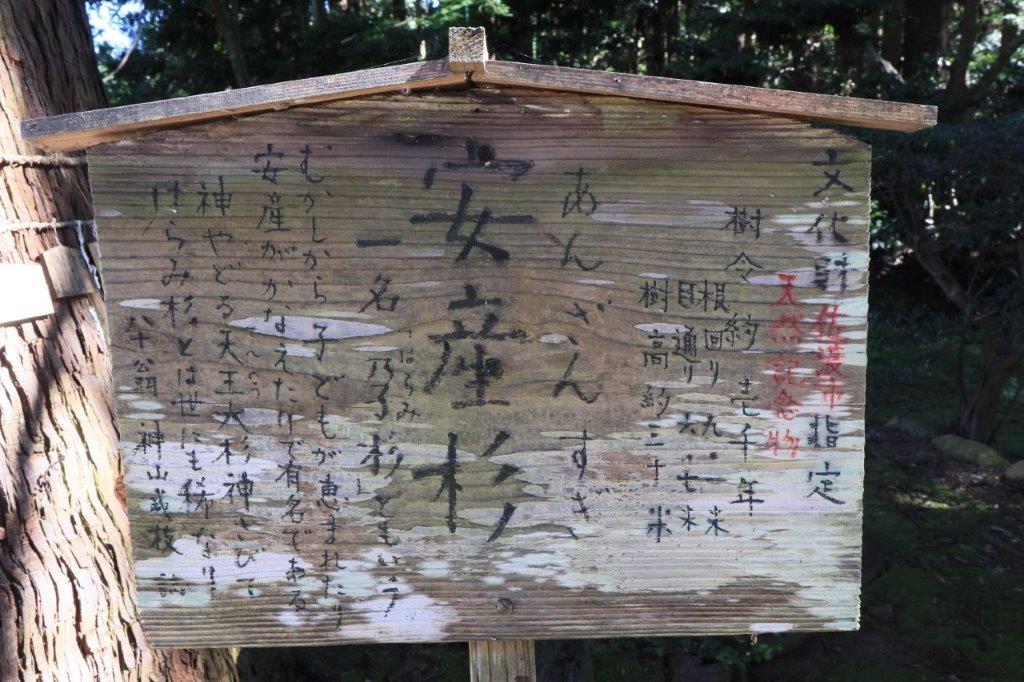 文化財 佐渡市 指定
天然記念物
樹令約壱千年
根回り 九・米
目通り 六・七米
樹高約三十米
あんざんすぎ
安産杉
一名 乃子杉ともいう
はらみ
むかしから子どもが恵まれたり
安産がかなえたりで有名である
神やどる天王大杉神といて
けらみ杉とは世にも稀な
神山